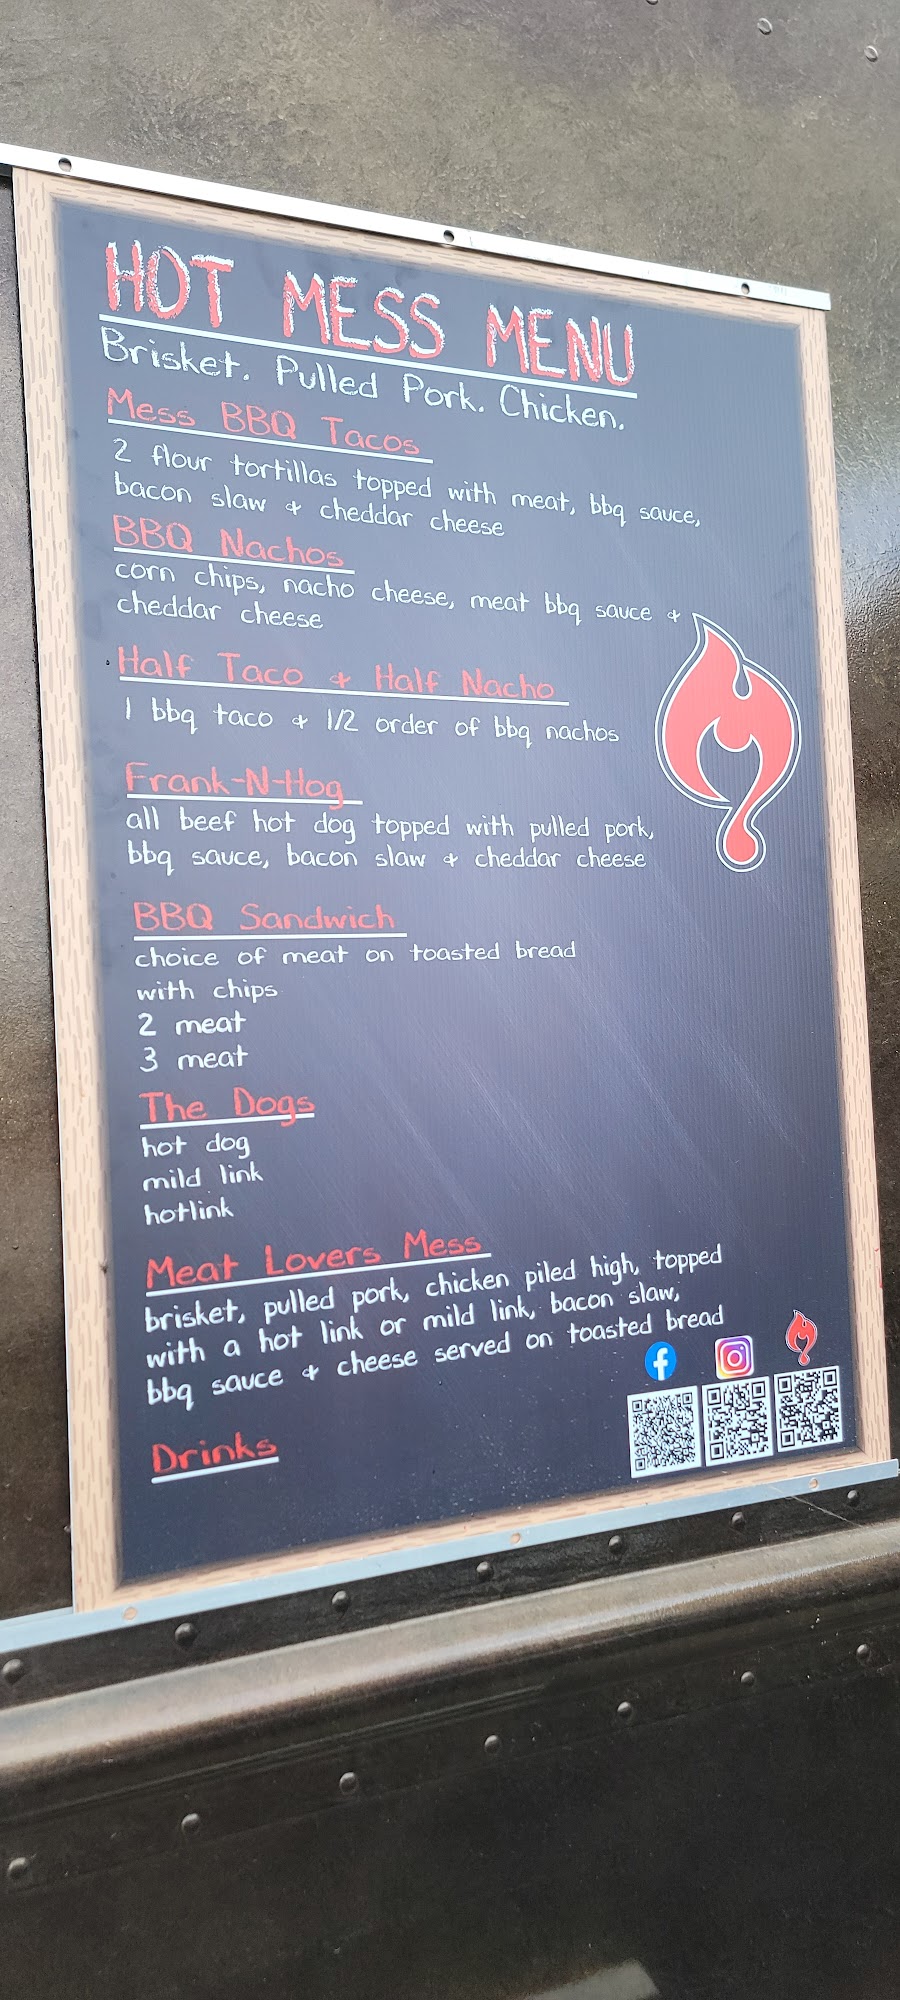 HOT MESS MENU
Brisket. Pulled Pork. Chicken.
Mess BBQ Tacos
2 flour tortillas topped with meat, bbq sauce,
bacon slaw & cheddar cheese
BBQ Nachos
corn chips, nacho cheese, meat bbq sauce &
cheddar cheese
Half Taco & Half Nacho
1 bbq taco & 1/2 order of bbq nachos
Frank-N-Hog
all beef hot dog topped with pulled pork,
bbq sauce, bacon slaw & cheddar cheese
BBQ Sandwich
choice of meat on toasted bread
with chips
2 meat
3 meat
The Dogs
hot dog
mild link
hotlink
Meat Lovers Mess
brisket, pulled pork, chicken piled high, topped
with a hot link or mild link, bacon slaw,
bbq sauce & cheese served on toasted bread
Drinks